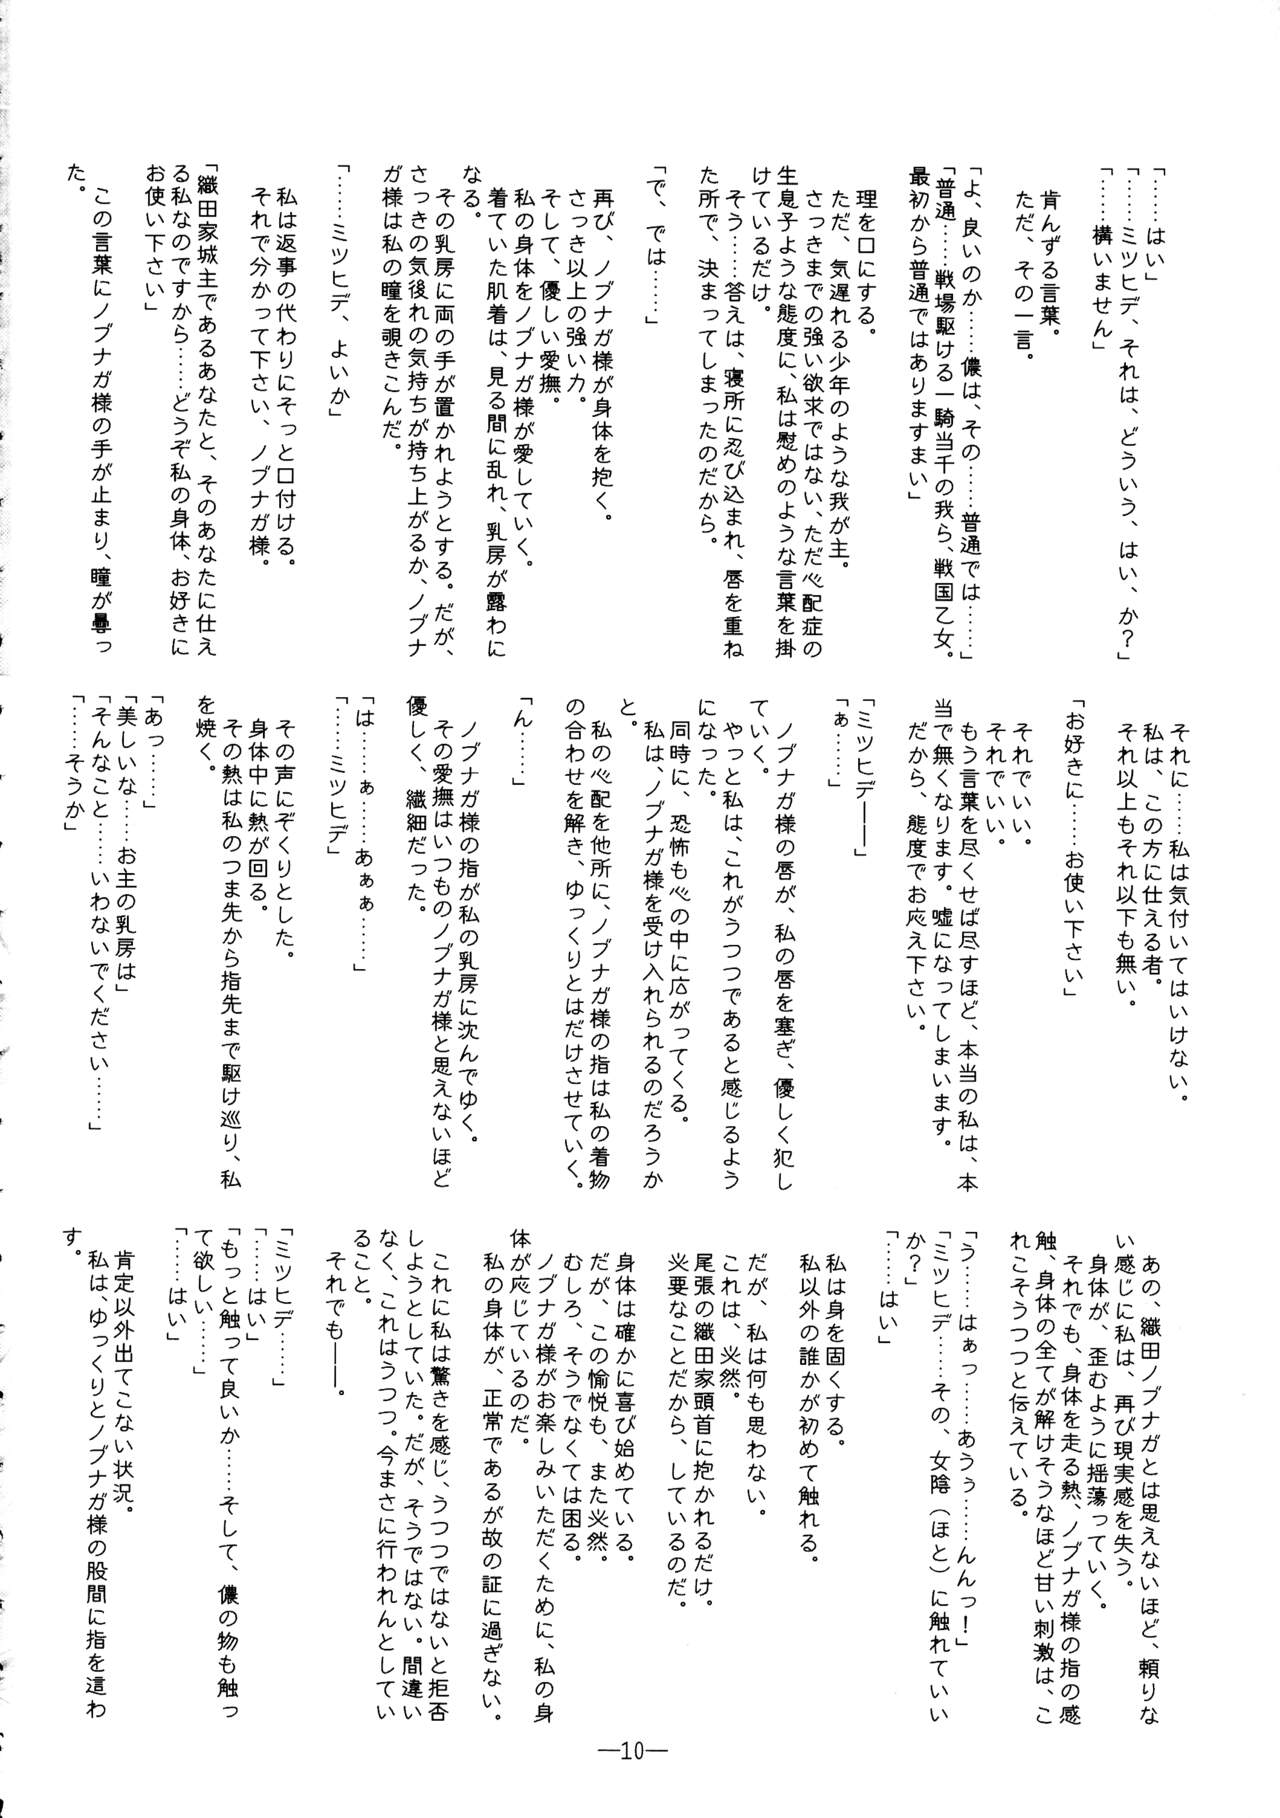 「……はい」
「……ミツヒデ、それは、どういう、はい、か？」
「……構いません」
肯んずる言葉。
ただ、その一言。
「よ、良いのか……儂は、その……普通では……」
「普通……戦場駆ける一騎当千の我ら、戦国乙女。
最初から普通ではありますまい」
理を口にする。
ただ、気遅れる少年のような我が主。
さっきまでの強い欲求ではない、ただ心配症の
生息子ような態度に、私は慰めのような言葉を掛
けているだけ。
そう……答えは、寝所に忍び込まれ、唇を重ね
た所で、決まってしまったのだから。
「で、では……」
再び、ノブナガ様が身体を抱く。
さっき以上の強い力。
そして、優しい愛撫。
私の身体をノブナガ様が愛していく。
着ていた肌着は、見る間に乱れ、乳房が露わに
なる。
その乳房に両の手が置かれようとする。だが、
さっきの気後れの気持ちが持ち上がるか、ノブナ
ガ様は私の瞳を覗きこんだ。
「……ミツヒデ、よいか」
私は返事の代わりにそっと口付ける。
それで分かって下さい、ノブナガ様。
「織田家城主であるあなたと、そのあなたに仕え
る私なのですから……どうぞ私の身体、お好きに
お使い下さい」
この言葉にノブナガ様の手が止まり、瞳が曇っ
た。
それに……私は気付いてはいけない。
私は、この方に仕える者。
それ以上もそれ以下も無い。
「お好きに……お使い下さい」
それでいい。
それでいい。
もう言葉を尽くせば尽すほど、本当の私は、本
当で無くなります。嘘になってしまいます。
だから、態度でお応え下さい。
「ミツヒデ――」
「ぁ……」
ノブナガ様の唇が、私の唇を塞ぎ、優しく犯し
ていく。
やっと私は、これがうつつであると感じるよう
になった。
同時に、恐怖も心の中に広がってくる。
私は、ノブナガ様を受け入れられるのだろうか
と。
私の心配を他所に、ノブナガ様の指は私の着物
の合わせを解き、ゆっくりとはだけさせていく。
「ん……」
ノブナガ様の指が私の乳房に沈んでゆく。
その愛撫はいつものノブナガ様と思えないほど
優しく、繊細だった。
「は……ぁ……あぁぁ……」
「……ミツヒデ」
その声にぞくりとした。
身体中に熱が回る。
その熱は私のつま先から指先まで駆け巡り、私
を焼く。
「あっ……」
「美しいな……お主の乳房は」
「そんなこと……いわないでください……」
「……そうか」
あの、織田ノブナガとは思えないほど、頼りな
い感じに私は、再び現実感を失う。
身体が、歪むように揺蕩っていく。
それでも、身体を走る熱、ノブナガ様の指の感
触、身体の全てが解けそうなほど甘い刺激は、こ
れこそうつつと伝えている。
「う……はぁっ……あうぅ……んんっ！」
「ミツヒデ……その、女陰（ほと）に触れていい
か？」
「……はい」
私は身を固くする。
私以外の誰かが初めて触れる。
だが、私は何も思わない。
これは、必然。
尾張の織田家頭首に抱かれるだけ。
必要なことだから、しているのだ。
身体は確かに喜び始めている。
だが、この愉悦も、また必然。
むしろ、そうでなくては困る。
ノブナガ様がお楽しみいただくために、私の身
体が応じているのだ。
私の身体が、正常であるが故の証に過ぎない。
これに私は驚きを感じ、うつつではないと拒否
しようとしていた。だが、そうではない。間違い
なく、これはうつつ。今まさに行われんとしてい
ること。
それでも――。
「ミツヒデ……」
「……はい」
「もっと触って良いか……そして、儂の物も触っ
て欲しい……」
「……はい」
肯定以外出てこない状況。
私は、ゆっくりとノブナガ様の股間に指を這わ
す。
―10―